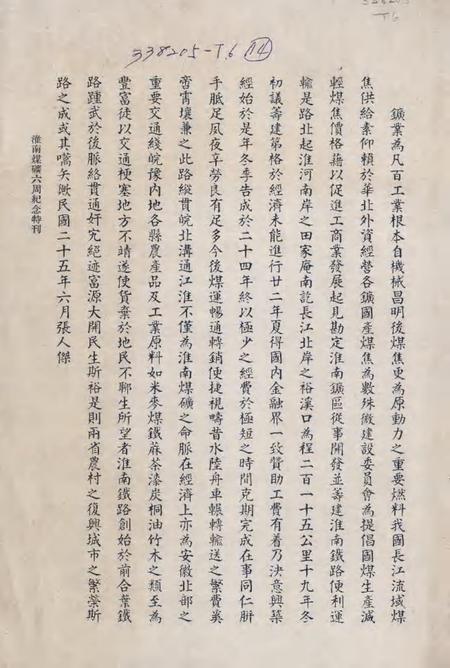 338205-T.6 14
338205
T6
鑛業為凡百工業根本自機械昌明後煤焦更為原動力之重要燃料我國長江流域煤
焦供給素仰賴於華北外資經營各鑛國產煤焦為數殊微建設委員會為提倡國煤生產減
輕煤焦價格藉以促進工商業發展起見勘定淮南鑛區從事開發並籌建淮南鐵路便利運
輸是路北起淮河南岸之田家庵南訖長江北岸之裕溪口為程二百一十五公里十九年冬
初議籌建第格於經濟未能進行廿二年夏得國內金融界一致贊助工費有着乃決意興築
經始於是年冬季告成於二十四年終以極少之經費於極短之時間克期完成在事同仁胼
手胝足夙夜辛勞良有足多今後煤運暢通轉銷便捷視疇昔水陸舟車輾轉輸送之繁費奚
啻霄壤兼之此路縱貫皖北溝通江淮不僅為淮南煤礦之命脈在經濟上亦為安徽北部之
重要交通綫皖豫內地各縣農產品及工業原料如米麥煤鐵麻茶漆炭桐油竹木之類至為
豐富徒以交通梗塞地方不靖遂使貨棄於地民不聊生所望者淮南鐵路創始於前合葉鐵
路踵武於後脈絡貫通奸宄絕迹富源大開民生斯裕是則兩省農村之復興城市之繁榮斯
路之成或其嚆矢歟民國二十五年六月張人傑
淮南煤礦六周紀念特刊